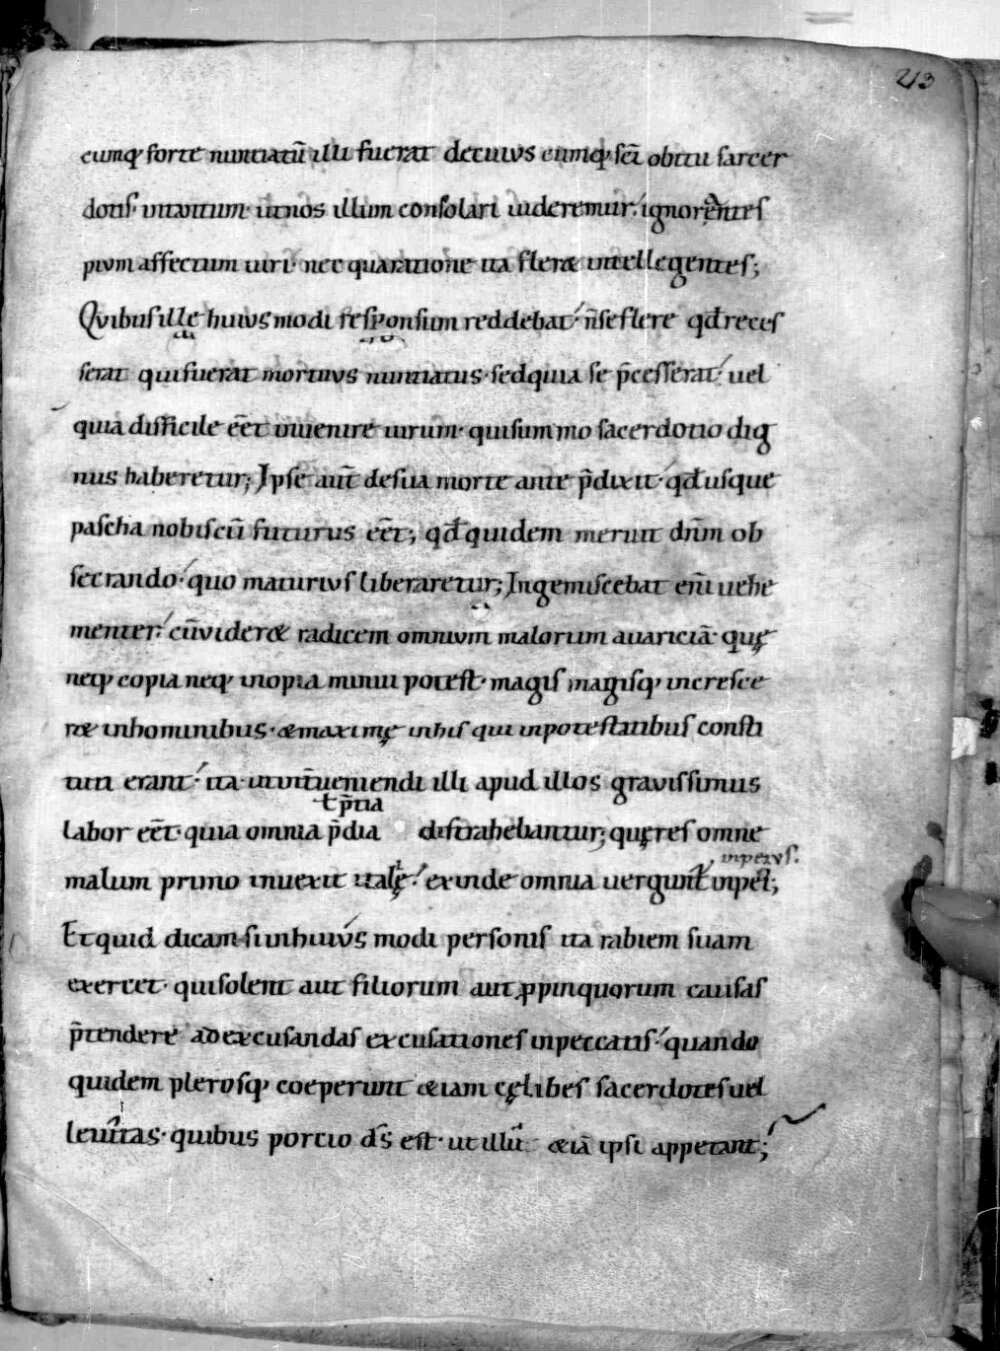 213
eumq; forte nuntiatū illi fuerat de cuius eumq; sc̄i obitu sacer
dotis· vitantum· ut nos illum consolari videremur·́ ignorantes
pium affectum viri· nec qua ratione ita fleræ intellegentes;
Quibus ille huius modi responsum reddebat·́ n̄ se flere qđ reces
serat qui fuerat mortuus nuntiatus· sed quia se p̄cesserat·́ vel
quia difficile eēt invenire virum· qui summo sacerdotio dig
nus haberetur; Ipse aut̄ de sua morte ante p̄dixit·́ qđ usque
pascha nobiscū futurus eēt; qđ quidem meruit dn̄m ob
secrando·́ quo maturius liberaretur; Ingemiscebat eni̅ vehe
menter·́ cū videræ radicem omnium malorum avariciā· quę
neq; copia neq; inopia minui potest· magis magisq; incresce
ræ in hominibus· & maximę in his qui in potestatibus consti
tuti erant·́ ita ut int̄veniendi illi apud illos gravissimus
ł p̄tia
labor eēt· quia omnia p̄dia distrahebantur; quę res omne
in peius·
malum primo invexit italię·́ exinde omnia vergunt in peł;
Et quid dicam si in huius modi personis ita rabiem suam
exercet· qui solent aut filiorum aut ꝓpinquorum causas
p̄tendere ad excusandas excusationes in peccatis·́ quando
quidem plerosq; coeperunt &iam cęlibes sacerdotes vel
levitas· quibus portio dś est· ut illū &iā ipsi appetant;